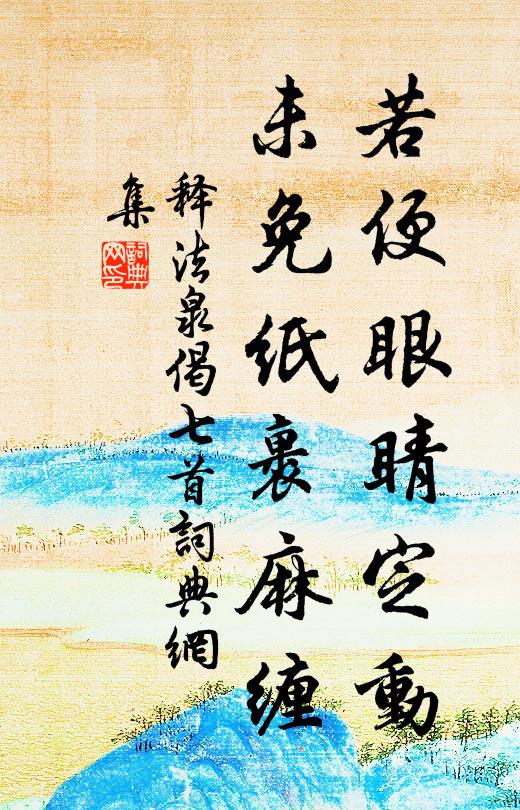 若便眼睛定動
未免紙裹麻纏
释法泉偈七首詞典網
集
詞典网印